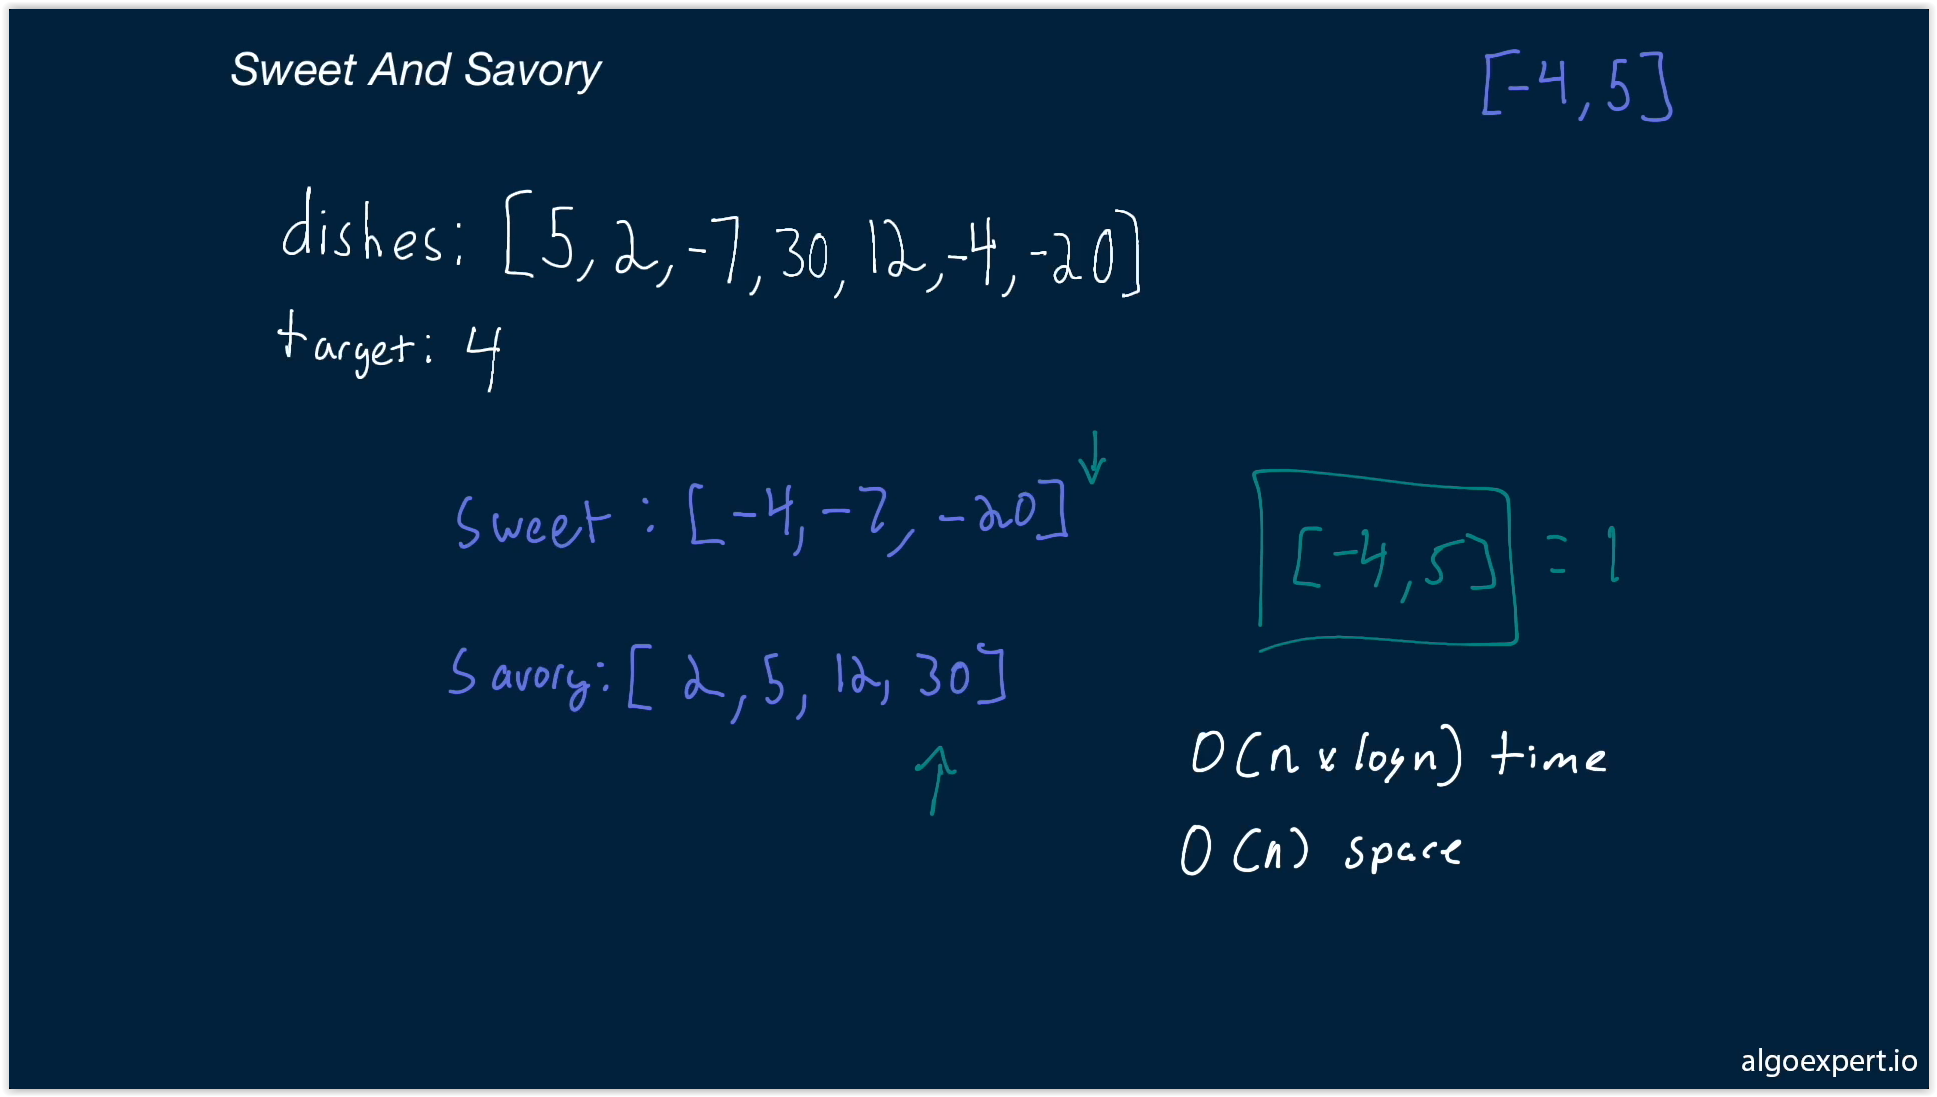 Sweet And Savory
[-4, 5]
dishes: [5, 2, -7, 30, 12, -4, -20]
target: 4
sweet: [-4, -7, -20]
[-4, 5] = 1
Savory: [2, 5, 12, 30]
O(n x logn) time
O(n) space
algoexpert.io